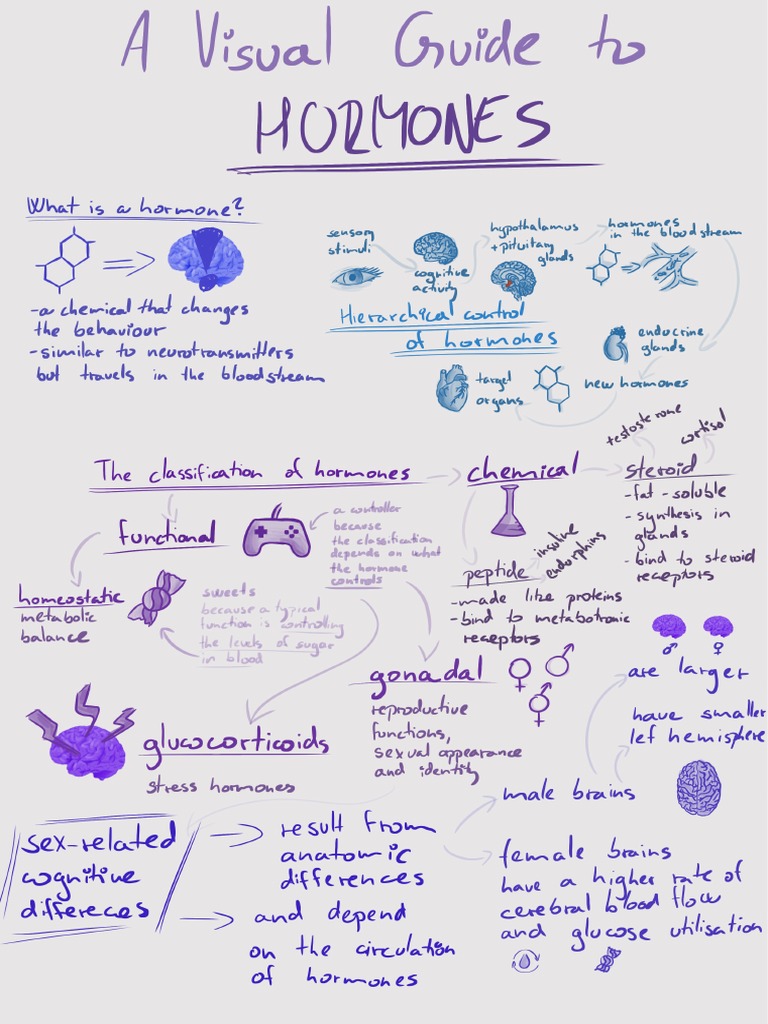 A Visual Guide to
HORMONES
What is a hormone?
-a chemical that changes
the behaviour
-similar to neurotransmitters
but travels in the bloodstream
sensory
stimuli
cognitive
activity
hypothalamus
+pituitary
glands
hormones
in the bloodstream
Hierarchical control
of hormones
endocrine
glands
new hormones
target
organs
The classification of hormones
chemical
steroid
testosterone
cortisol
-fat-soluble
-synthesis in
glands
-bind to steroid
receptors
peptide
insuline
endorphins
-made like proteins
-bind to metabotronic
receptors
functional
a controller
because
the classification
depends on what
the hormone
controls
homeostatic
metabolic
balance
sweets
because a typical
function is controlling
the levels of sugar
in blood
gonadal
reproductive
functions,
sexual appearance
and identity
glucocorticoids
stress hormones
sex-related
cognitive
differeces
result from
anatomic
differences
and depend
on the circulation
of hormones
male brains
♂
♀
are larger
have smaller
lef hemisphere
female brains
have a higher rate of
cerebral blood flow
and glucose utilisation